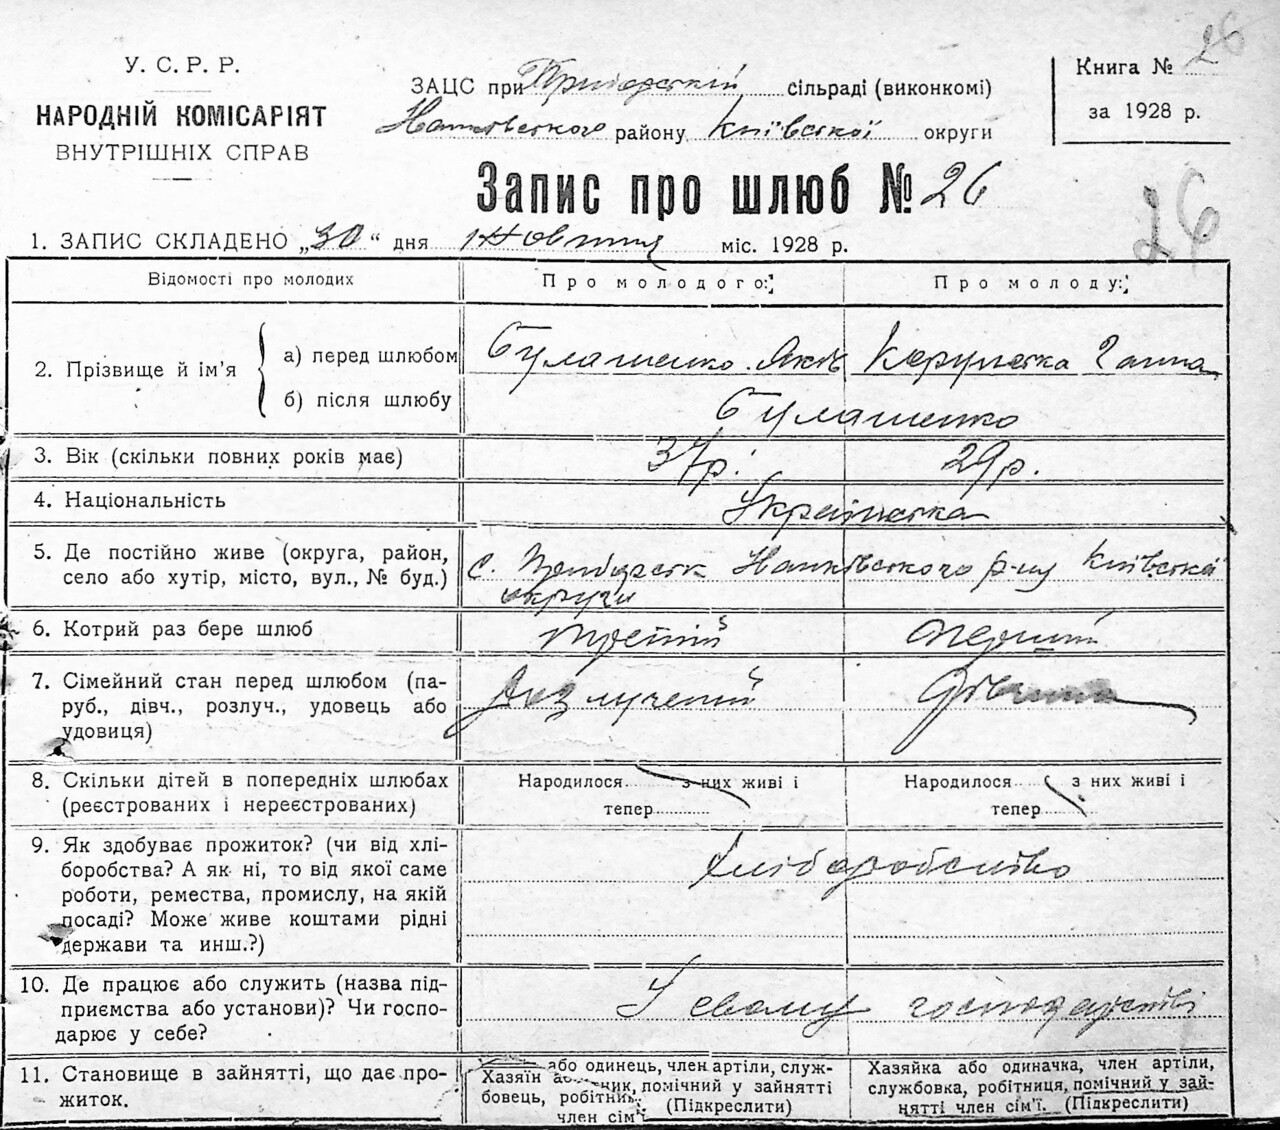 26
У. С. Р. Р.
НАРОДНІЙ КОМІСАРІЯТ
ВНУТРІШНІХ СПРАВ
ЗАЦС при Прибірській сільраді (виконкомі)
району Київської округи
Книга №
за 1928 р.
Запис про шлюб № 26
26
1. ЗАПИС СКЛАДЕНО „30“ дня Жовтня міс. 1928 р.
Відомості про молодих
Про молодого:
Про молоду:
2. Прізвище й ім'я
а) перед шлюбом
Булашенко Яків
Ганна
б) після шлюбу
Булашенко
3. Вік (скільки повних років має)
37 р.
29 р.
4. Національність
Українська
5. Де постійно живе (округа, район, село або хутір, місто, вул., № буд.)
с. р-ну Київської
округи
6. Котрий раз бере шлюб
третій
перший
7. Сімейний стан перед шлюбом (па-
руб., дівч., розлуч., удовець або
удовиця)
Розлучений
Дівчина
8. Скільки дітей в попередніх шлюбах
(реєстрованих і нереєстрованих)
Народилося з них живі і
тепер
Народилося з них живі і
тепер
9. Як здобуває прожиток? (чи від хлі-
боробства? А як ні, то від якої саме
роботи, ремества, промислу, на якій
посаді? Може живе коштами рідні
держави та инш.?)
Хліборобство
10. Де працює або служить (назва під-
приємства або установи)? Чи госпо-
дарює у себе?
У свому господарстві
11. Становище в зайнятті, що дає про-
житок.
Хазяїн або одинець, член артіли, служ-
бовець, робітник, помічний у зайнятті
член сім'ї (Підкреслити)
Хазяйка або одиначка, член артіли,
службовка, робітниця, помічний у зай-
нятті член сім'ї. (Підкреслити)